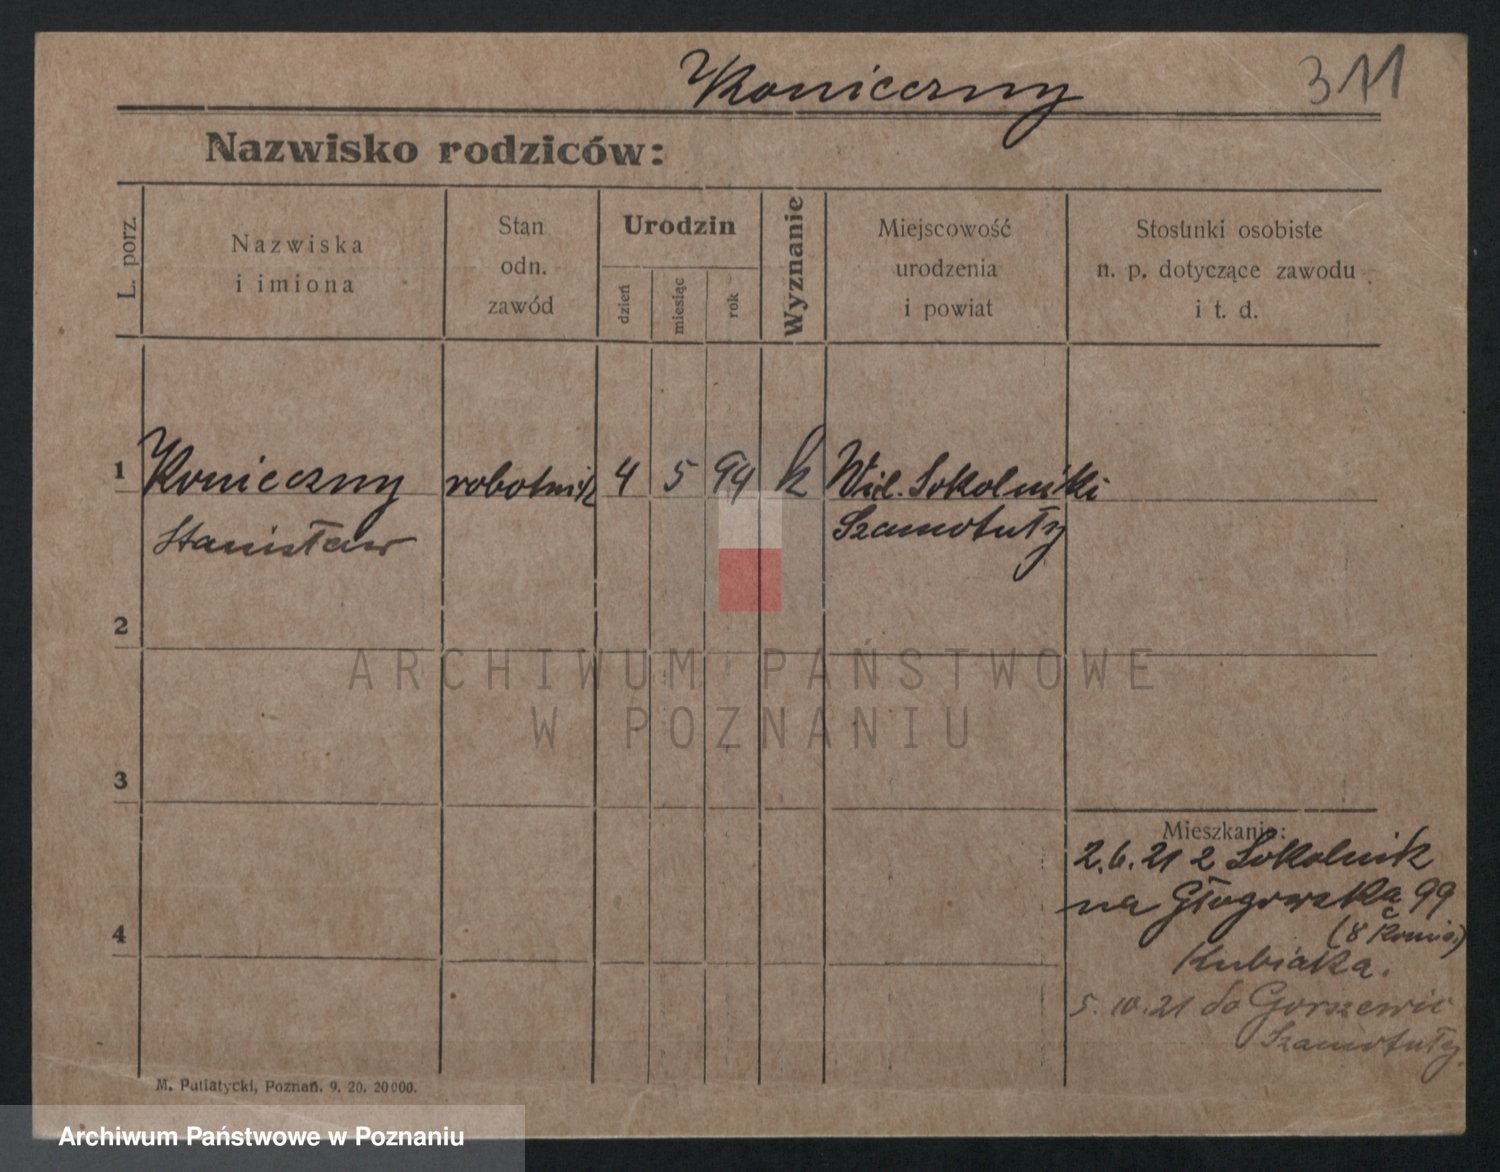 Konieczny 311
Nazwisko rodziców:
L. porz.
Nazwiska
i imiona
Stan
odn.
zawód
Urodzin
dzień
miesiąc
rok
Wyznanie
Miejscowość
urodzenia
i powiat
Stosunki osobiste
n. p. dotyczące zawodu
i t. d.
1 Konieczny robotnik 4 5 94 k Wiel. Sokolniki
Stanisław Szamotuły
2
ARCHIWUM PAŃSTWOWE
W POZNANIU
3
Mieszkanie:
2.6.21 z Sokolnik
na Głogowska 99
4
(8 Komis.)
Kubiaka.
5. 10. 21 do Gorszewic
Szamotuły
M. Putiatycki, Poznań. 9. 20. 20000.
Archiwum Państwowe w Poznaniu